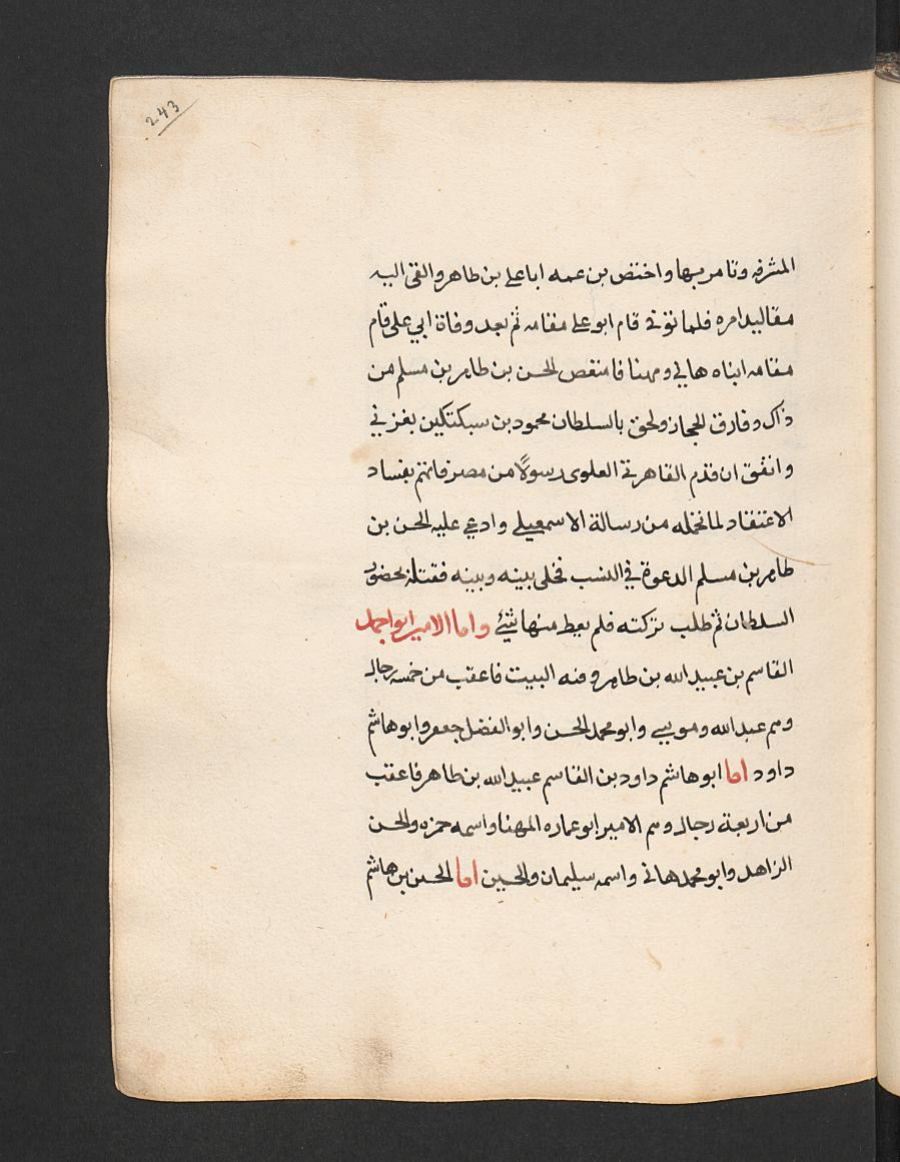 243
المشرفه وتامر بها واختص بن عمه ابا علي بن طاهر والقى اليه
مقاليد امره فلما توفى قام ابو علي مقامه ثم بعد وفاة ابي علي قام
مقامه ابناه هاني ومهنا فامتعض الحسن بن طاهر بن مسلم من
ذاك وفارق الحجاز ولحق بالسلطان محمود بن سبكتكين بغزني
واتفق ان قدم القاهرتي العلوى رسولًا من مصر فاتهم بفساد
الاعتقاد لما تحمله من رسالة الاسمعيلي وادعي عليه الحسن بن
طاهر بن مسلم الدعوة في النسب فخلى بينه وبينه فقتله بحضور
السلطان ثم طلب تركته فلم يعط منها شئ واما الامير ابو احمد
القاسم بن عبيد الله بن طاهر وفنه البيت فاعقب من خمسه رجال
وهم عبد الله وموسي وابو محمد الحسن وابو الفضل جعفر وابو هاشم
داود اما ابو هاشم داود بن القاسم عبيد الله بن طاهر فاعقب
من اربعة رجال وهم الامير ابو عماره المهنا واسمه حمزه والحسن
الزاهد وابو محمد هانى واسمه سليمان والحسين اما الحسن بن هاشم